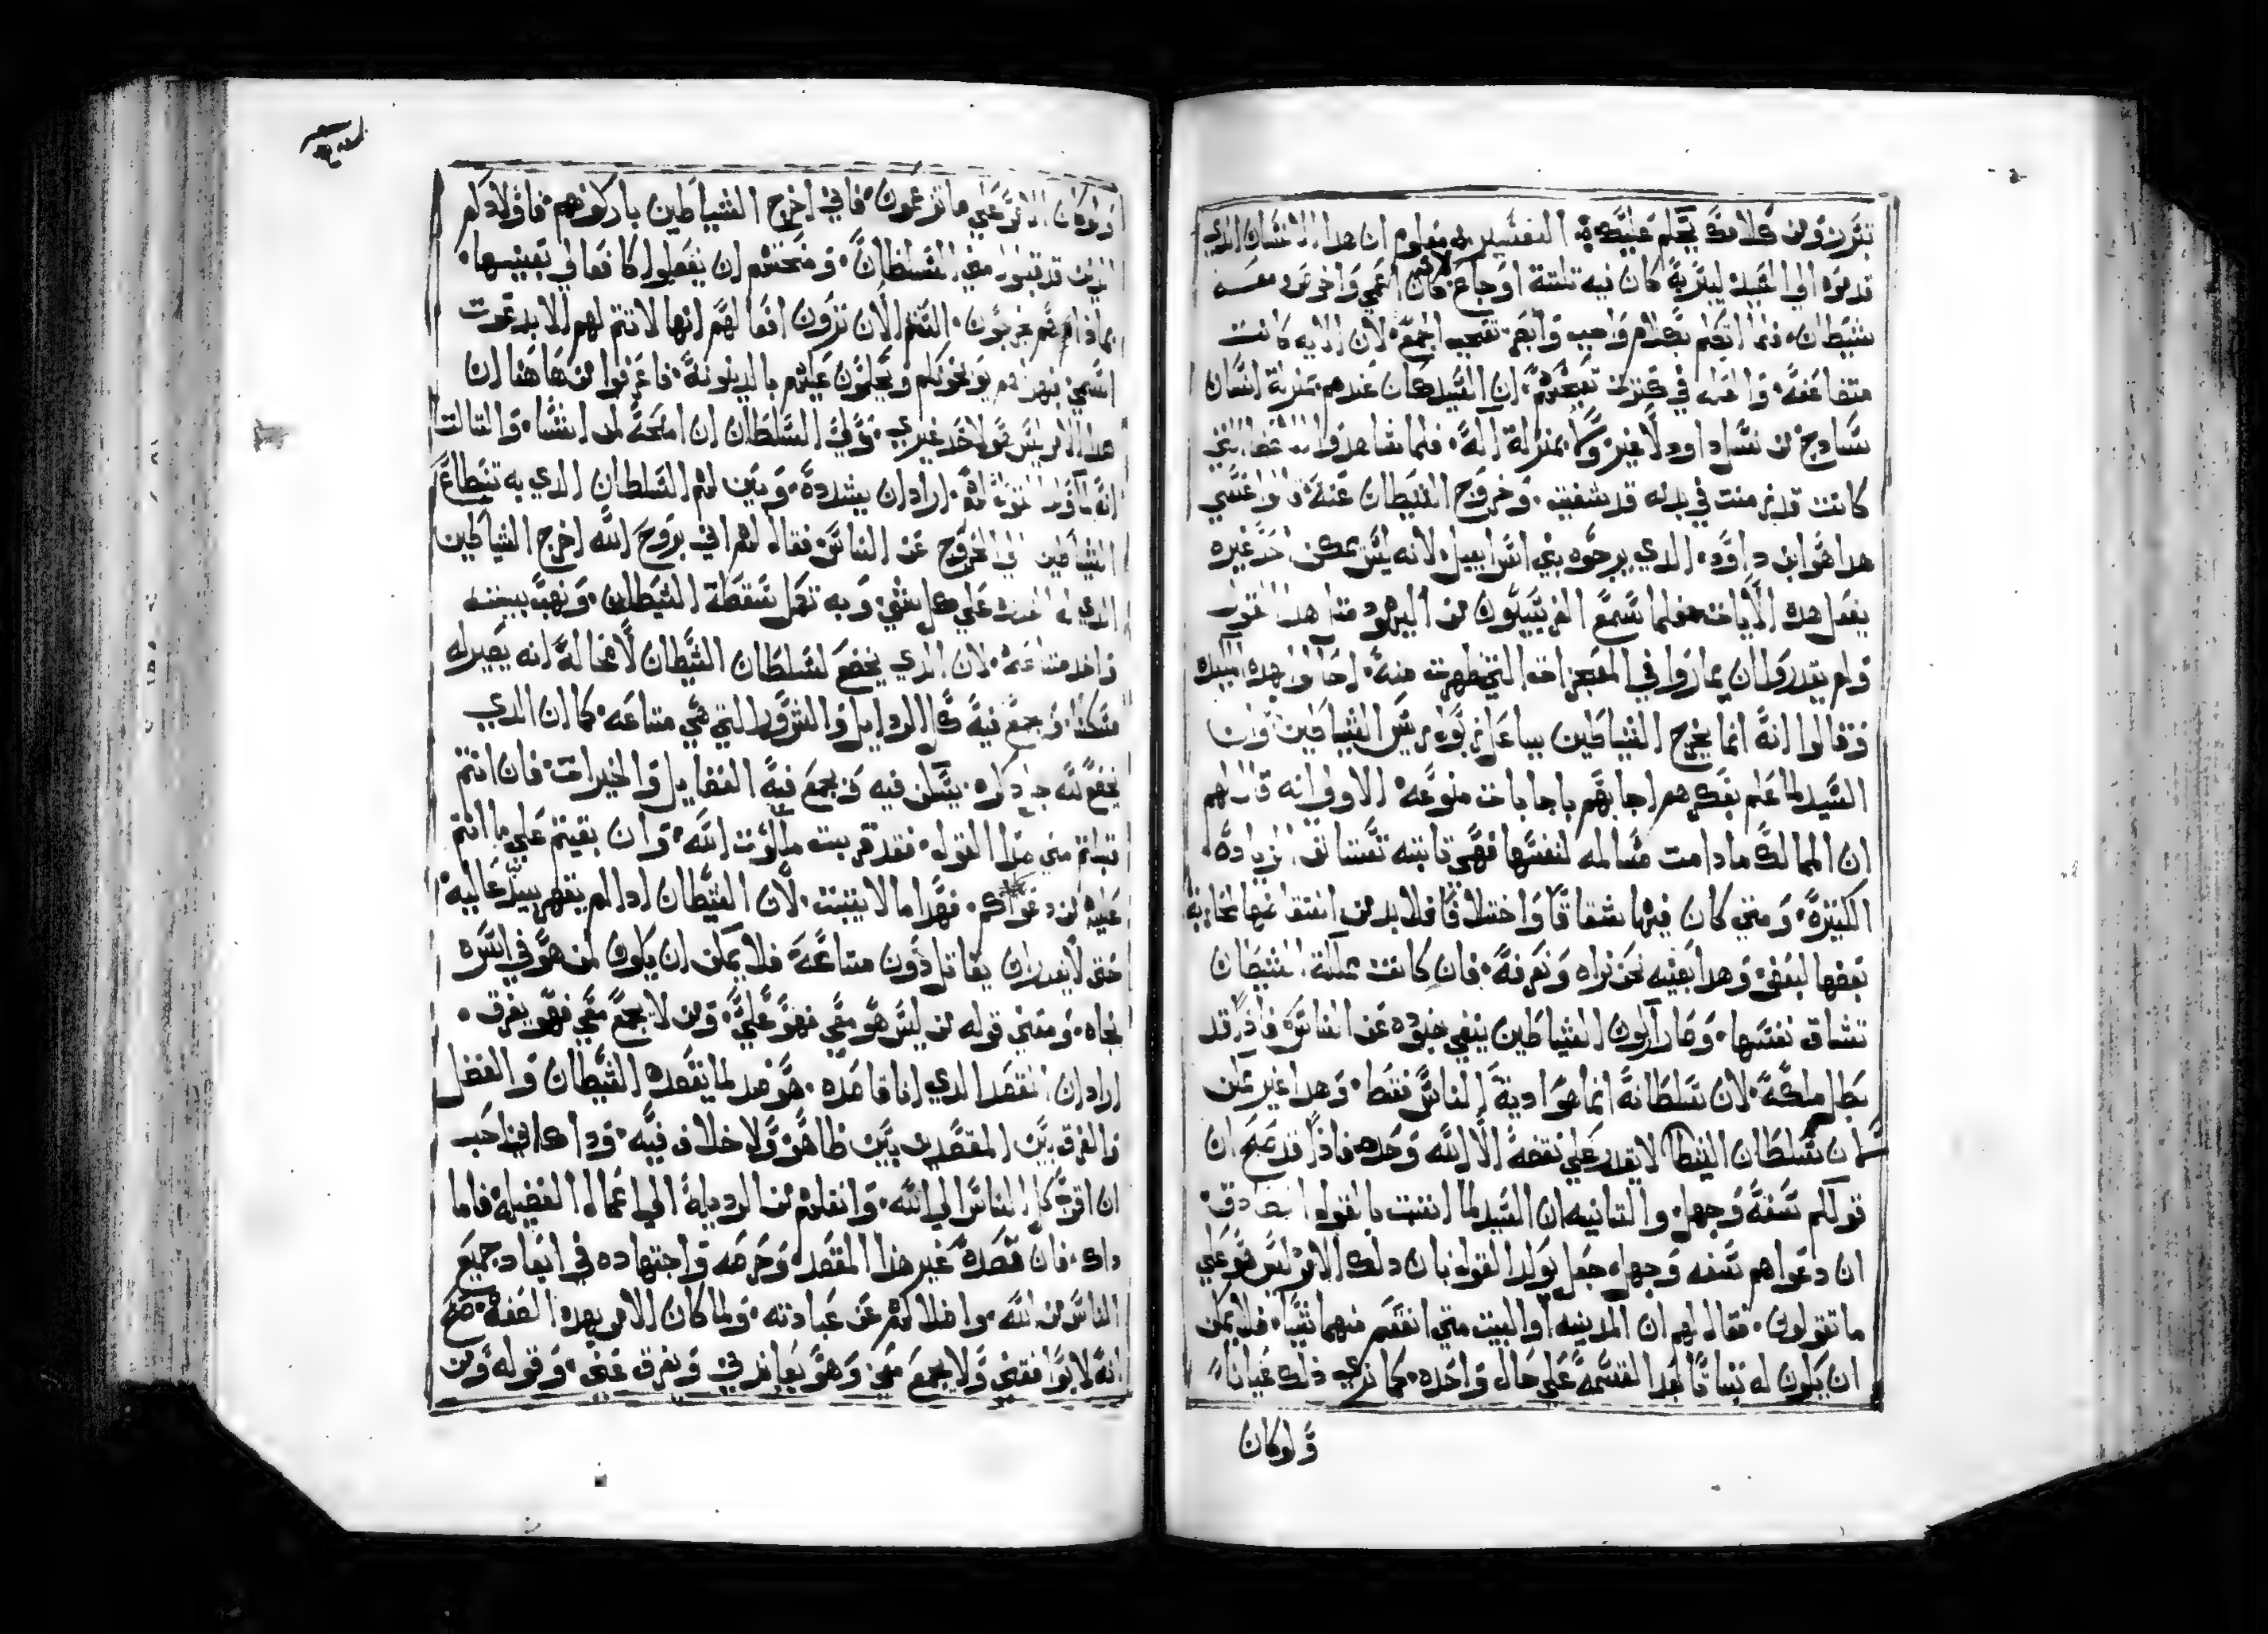 تتزر ومن كلامك يحكم عليك التفسير معلوم ان هدا الانسان الدي
قدموه الي السيد ليبريه كان فيه تلتة اوجاع كان اعمي واخرس ومعه
شيطان فلما اتكلم بكلام واجب وابصر تعجب الجمع لان الايه كانت
متضاعفه والعله في كترت تعجبهم ان السيد كان عندهم بمنزلة انسان
سادج من نسل داود لا غير وكا بمنزلة اله فلما شاهدوا التي
كانت قد ازمنت في بدنه قد شفيت وخروج الشيطان عنه قالوا عسي
هدا هو ابن داود الدي يرجوه بني اسراييل لانه ليس يمكن احد غيره
يفعل هده الايات فلما سمع الفريسيون من اليهود متل هدا القول
ولم يقدروا ان يماروا في المعجزات التي ظهرت منه احتالوا بهده الحيله
وقالوا انه انما يخرج الشياطين بباعلزبول ريس الشياطين وان
السيد لما علم بفكرهم اجابهم باجابات منوعه الاولي انه قال لهم
ان الممالك ما دامت مسالمه لنفسها فهي تابته تستانف الزياده
الكتيره ومتي كان فيها شقاقا واختلافا فلا بد من انتقاضها لمحاربة
بعضها لبعض وهدا بعينه نحن نراه ونعرفه فان كانت مملكة الشيطان
تشاق نفسها وصار اركون الشياطين ينفي جنوده عن الناس فاذا قد
بطل ملكه لان سلطانه انما هو ادية الناس فقط وهدا غير ممكن
لان سلطان الشيطا لا يقدر علي نقضه الا الله وحده فاذا قد صح ان
قولكم سفه وجهل والتانيه ان السيد لما اتبت بالقول الصادق
ان دعواهم سفه وجهل جعل يولد القول بان دلك الامر ليس هو علي
ما تقولون فقال لهم ان المدينه او البيت متي انقسم منهما شيا فلا يمكن
ان يكون له تباتا بعد القسمه علي حال واحده كما نري ذلك عيانا
ولوكان
ولوكان الامر علي ما تزعمون فاني اخرج الشياطين باركونهم فاولادكم
الدين قد قبلوا مني السلطان ومنحتهم ان يفعلوا كافعالي بعينها
بماذا هم يخرجون التتم الان ترون افعالهم انها لا تتم لهم الا بدعوت
اسمي فهولاهم يوبخونكم ويحكمون عليكم بالدينونه فاعرفوا من هاهنا ان
هدا الامر ليس هو لاحد غيري ولي السلطان ان امنحه لمن اشا والتالت
انه اراد ان يشدده ويبين لهم السلطان الدي به تستطاع
الشياطين الي الخروج عن الناس فقال لهم اني بروح الله اخرج الشياطين
الدي له علي كل شي وبه تكمل سقطة الشيطان ونهب بيته
واخد متاعه لان الدي يخضع لسلطان الشيطان لا محاله انه يصير له
مسكنا وجمع فيه كل الردايل والشرور التي هي متاعه كما ان الدي
يخضع لله يسكن فيه ويجمع فيه الفضايل والخيرات فان انتم
قبلتم مني هدا القول فقد قربت ملكوت الله وان بقيتم علي ما انتم
عليه من دعواكم فهدا ما لا يتبت لان الشيطان ادا لم يقهر بيد عاليه
حتي لا يقدر ان يقاتل دون متاعه فلا يمكن ان يكون لمن هو في اسره
نجاه ومعني قوله من ليس هو معي فهو علي ومن لا يجمع معي فهو يفرق
اراد ان القصد الدي انا قاصده هو ضد لما يقصده الشيطان والفضل
والفرق بين المقصدين بين ظاهر ولا خلاف فيه وداك اني احب
ان اقرب كل الناس الي الله وانقلهم من الرديله الي اعمال الفضيله فاما
داك فان قصده غير هذا المقصد وحرصه واجتهاده في ابعاد جميع
الناس من الله واضلالهم عن عبادته ولما كان الامر بهده الصفة صح
انه لا يوافقني ولا يجمع معي وهو يعاندني ويفرق عني وقوله ومن